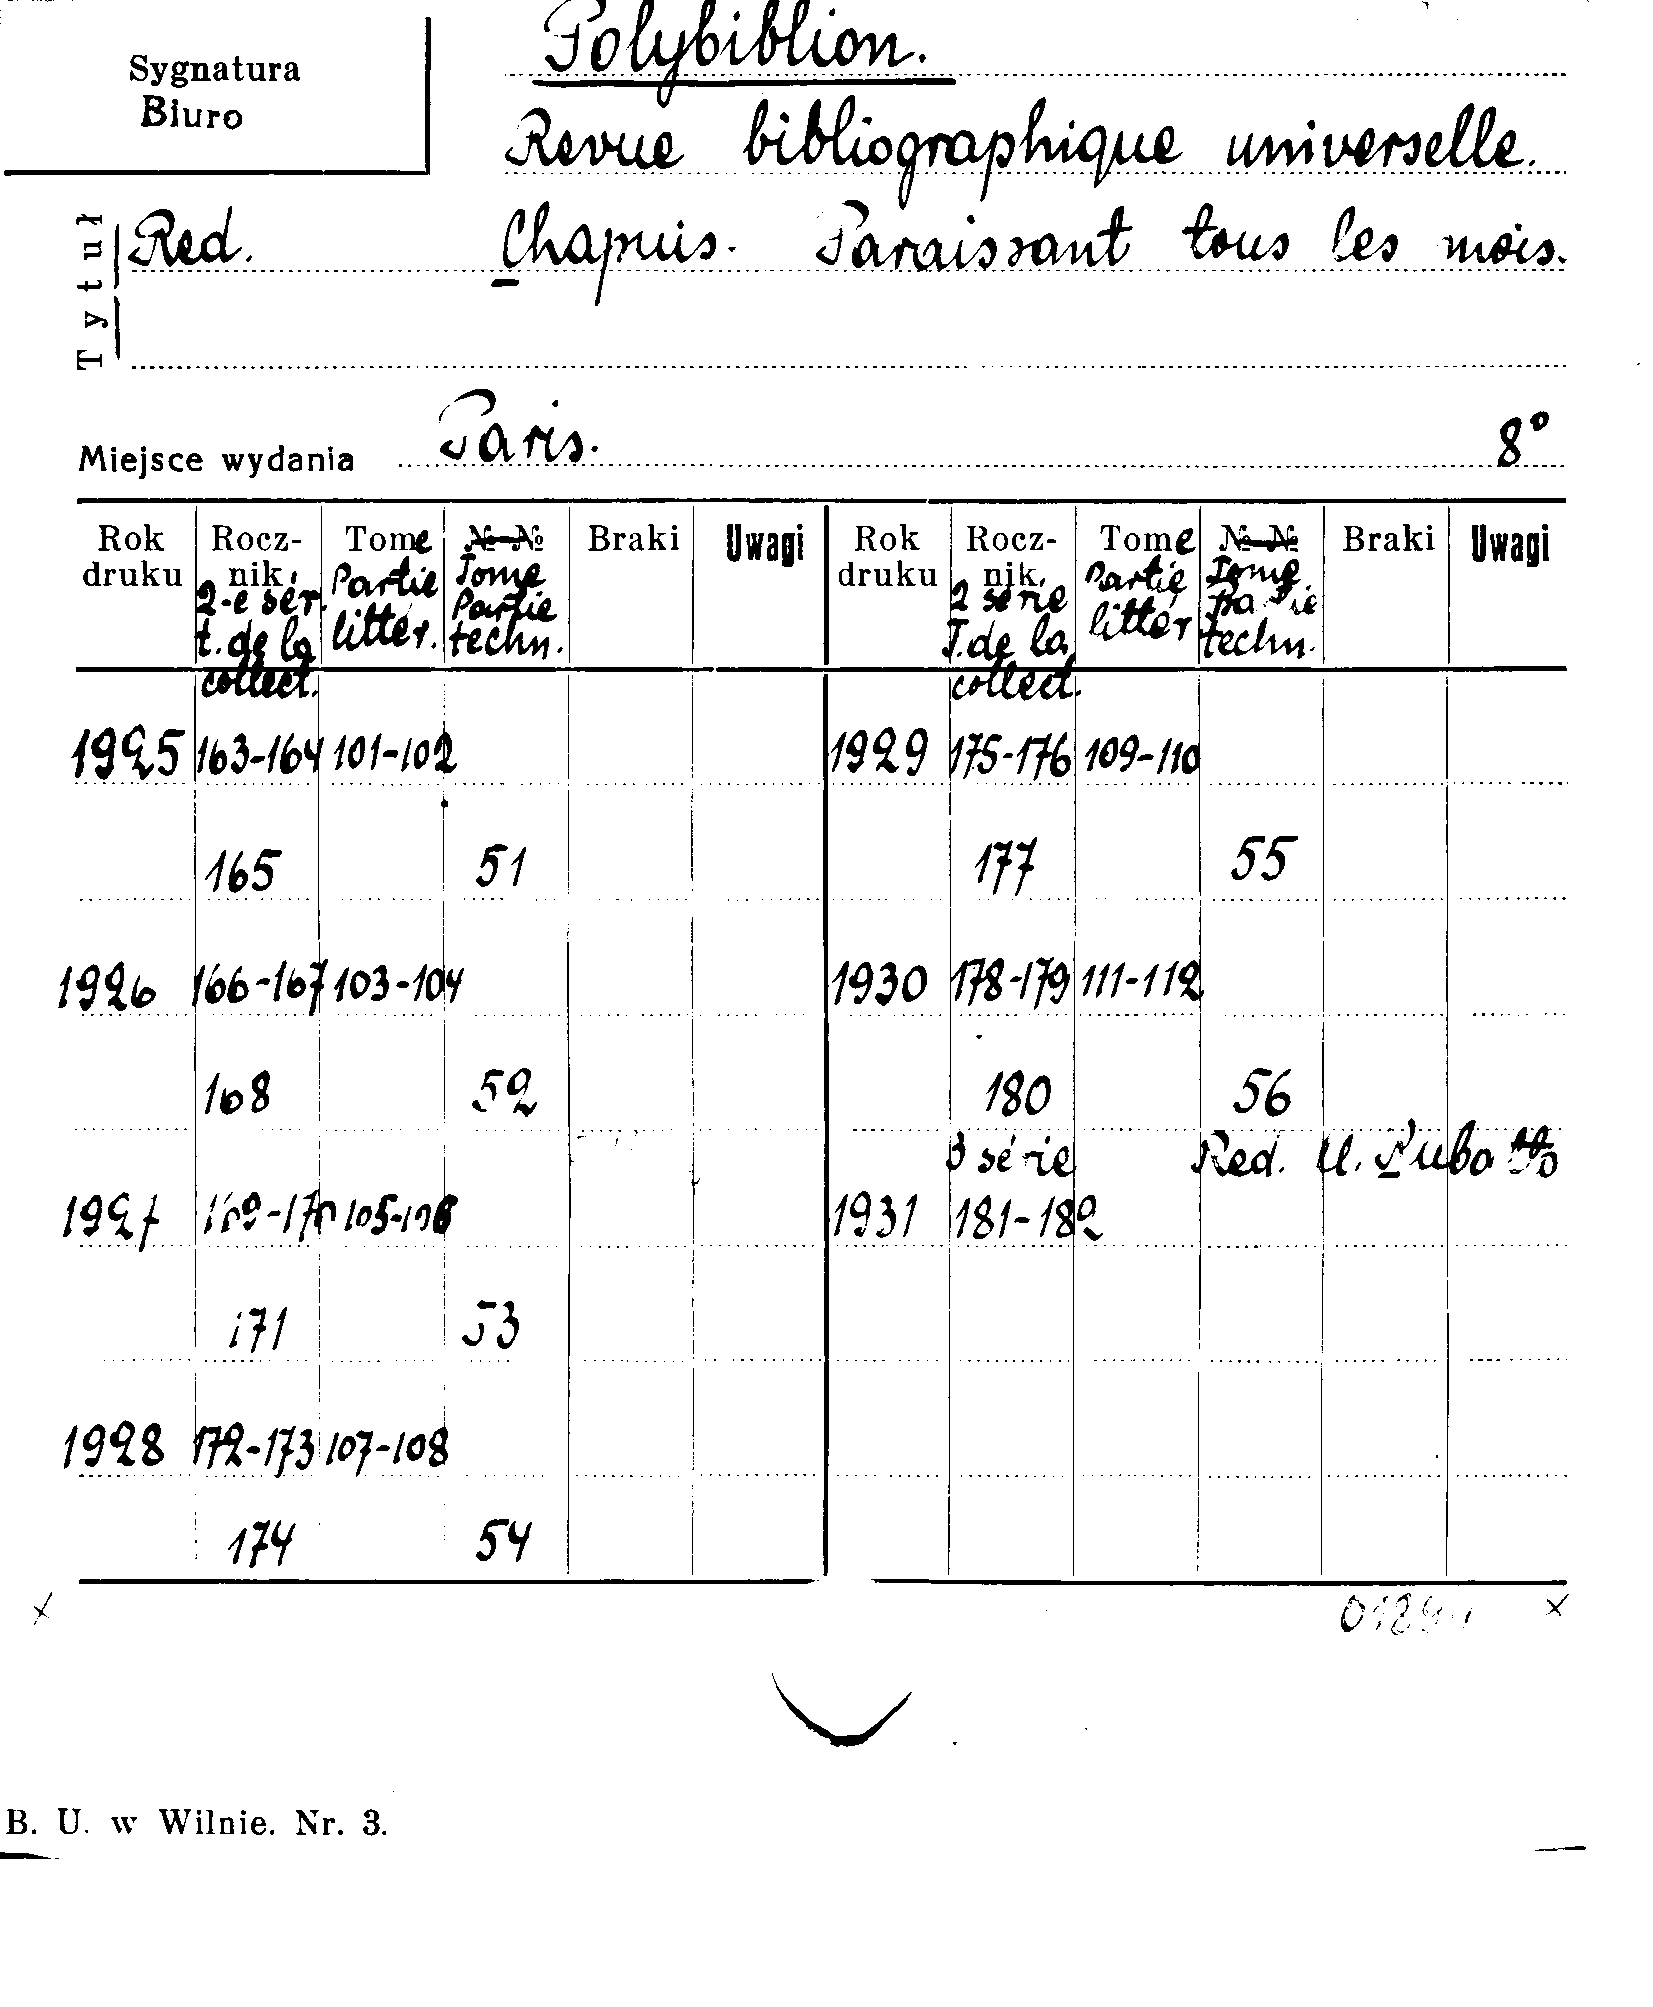 Polybiblion.
Sygnatura
Biuro
Revue bibliographique universelle.
Tytuł
Red. Chapuis. Paraissant tous les mois.
Miejsce wydania Paris. 8°
Rok druku Rocznik 2-e sér. t. de la collect. Tome Partie littér. №-№ Tome Partie techn. Braki Uwagi Rok druku Rocznik 2 série T. de la collect. Tome Partie littér №-№ Tome Partie techn. Braki Uwagi
1925 163-164 101-102 1929 175-176 109-110
165 51 177 55
1926 166-167 103-104 1930 178-179 111-112
168 52 180 56
3 série Red. U.
1927 169-170 105-106 1931 181-182
171 53
1928 172-173 107-108
174 54
x x
B. U. w Wilnie. Nr. 3.